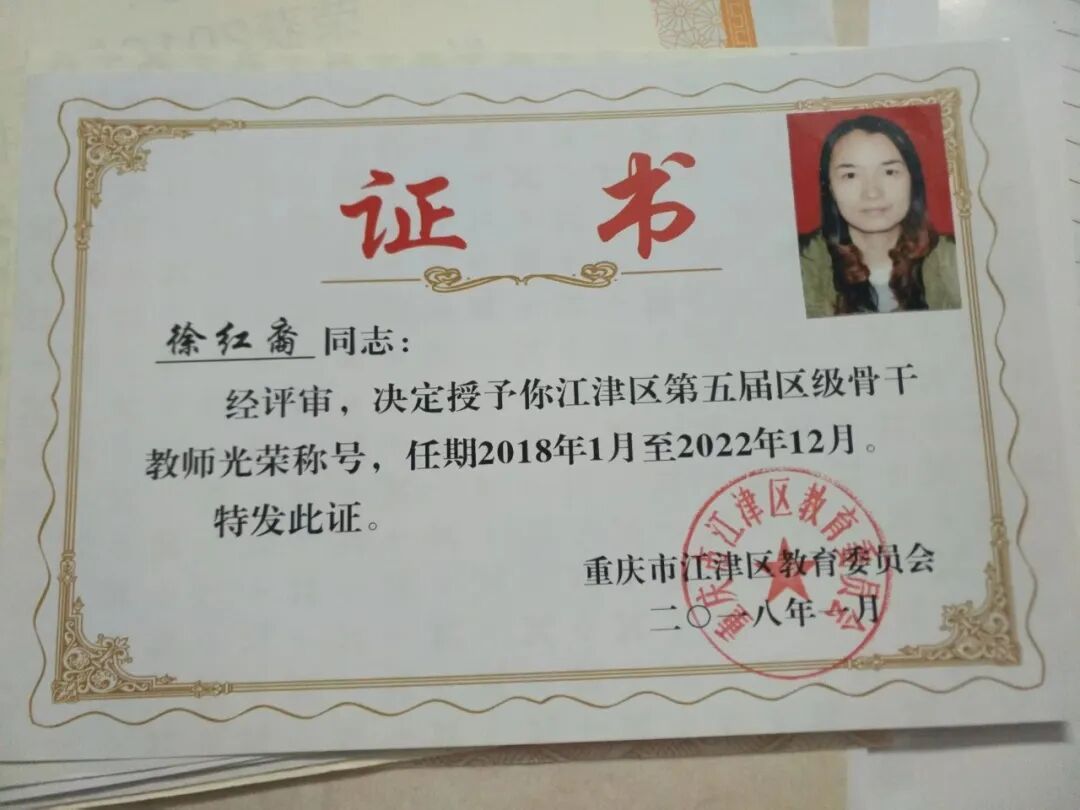 证书
徐红裔 同志：
经评审，决定授予你江津区第五届区级骨干
教师光荣称号，任期2018年1月至2022年12月。
特发此证。
重庆市江津区教育委员会
二〇一八年一月
重庆市江津区教育委员会